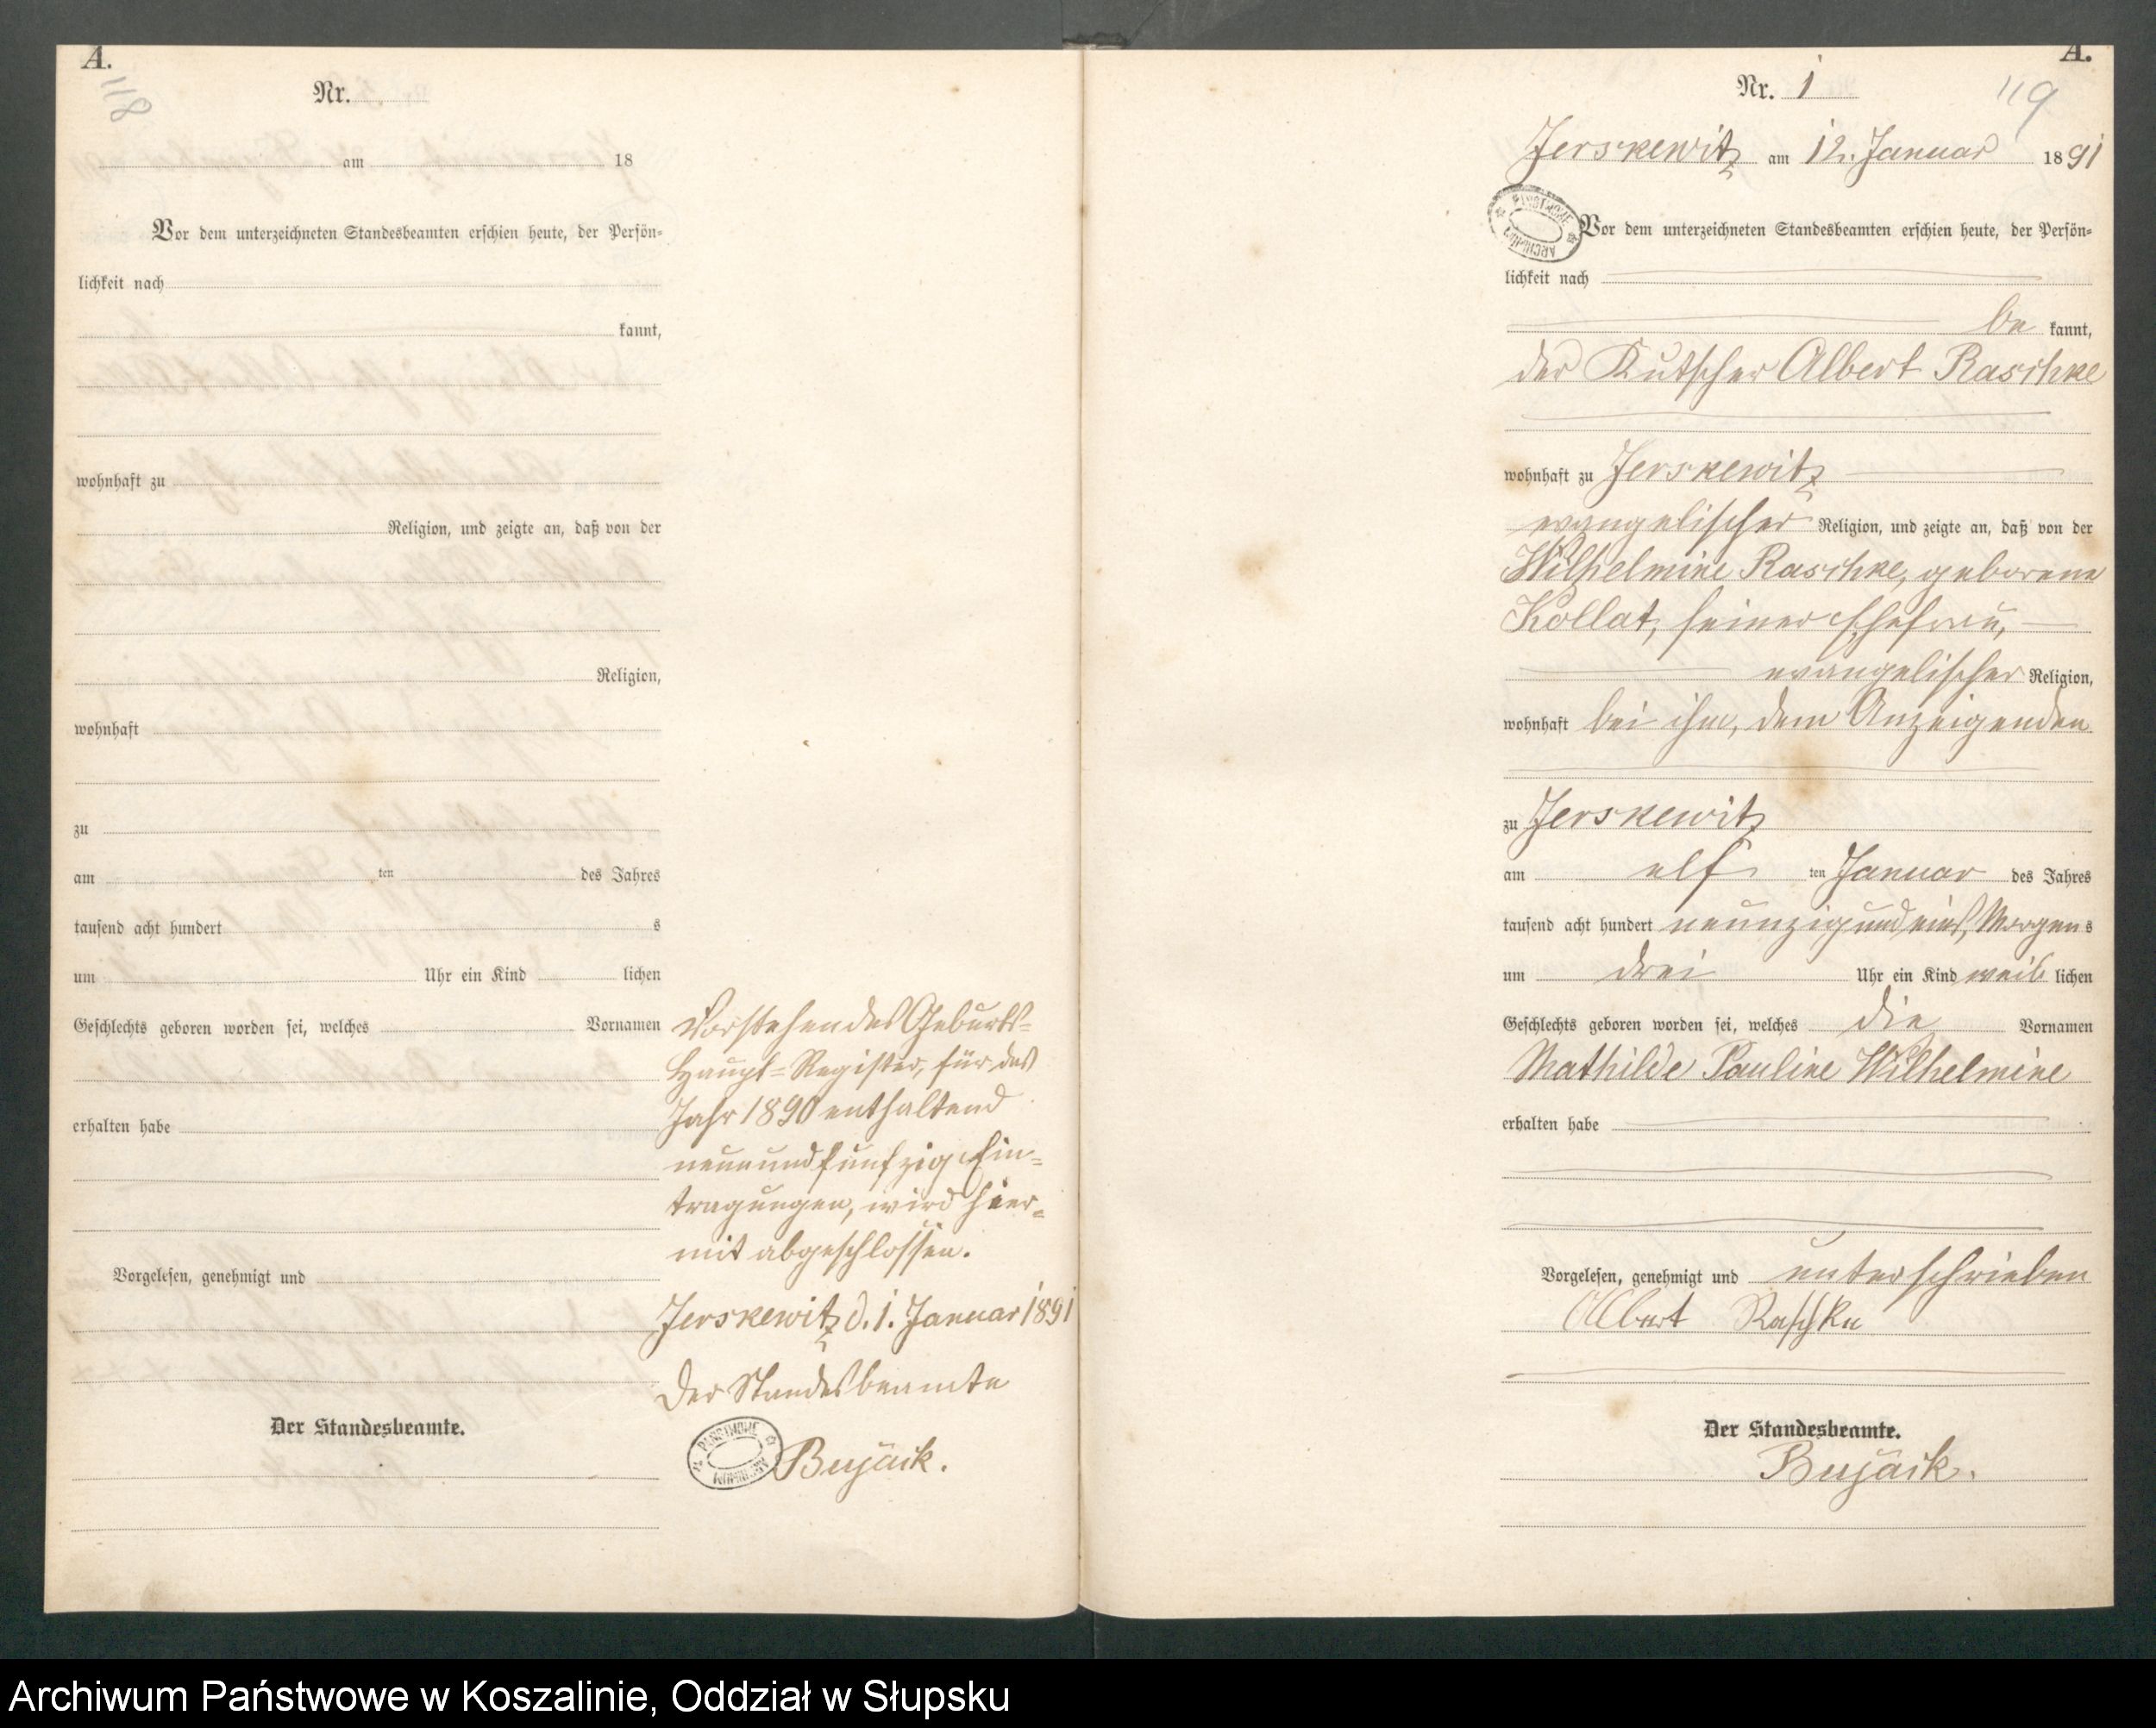 A.
118
Nr.
am 18
Vor dem unterzeichneten Standesbeamten erschien heute, der Persön-
lichkeit nach
kannt,
wohnhaft zu
Religion, und zeigte an, daß von der
Religion,
wohnhaft
zu
am ten des Jahres
tausend acht hundert s
um Uhr ein Kind lichen
Geschlechts geboren worden sei, welches Vornamen
erhalten habe
Vorgelesen, genehmigt und
Der Standesbeamte.
Vorstehendes Geburts-
Haupt-Register, für das
Jahr 1890 enthaltend
neunundfünfzig Ein-
tragungen, wird hier-
mit abgeschlossen.
Jerskewitz d. 1. Januar 1891
Der Standesbeamte
PAŃSTWOWE ARCHIWUM
Bujack.
A.
119
Nr. 1
Jerskewitz am 12. Januar 1891
PAŃSTWOWE ARCHIWUM
Vor dem unterzeichneten Standesbeamten erschien heute, der Persön-
lichkeit nach
be kannt,
der Kutscher Albert Raschke
wohnhaft zu Jerskewitz
evangelischer Religion, und zeigte an, daß von der
Wilhelmine Raschke, geborene
Kollat, seiner Ehefrau,
evangelischer Religion,
wohnhaft bei ihm, dem Anzeigenden
zu Jerskewitz
am elf ten Januar des Jahres
tausend acht hundert neunzig und eins, Morgens
um drei Uhr ein Kind weib lichen
Geschlechts geboren worden sei, welches die Vornamen
Mathilde Pauline Wilhelmine
erhalten habe
Vorgelesen, genehmigt und unterschrieben
Albert Raschke
Der Standesbeamte.
Bujack.
Archiwum Państwowe w Koszalinie, Oddział w Słupsku